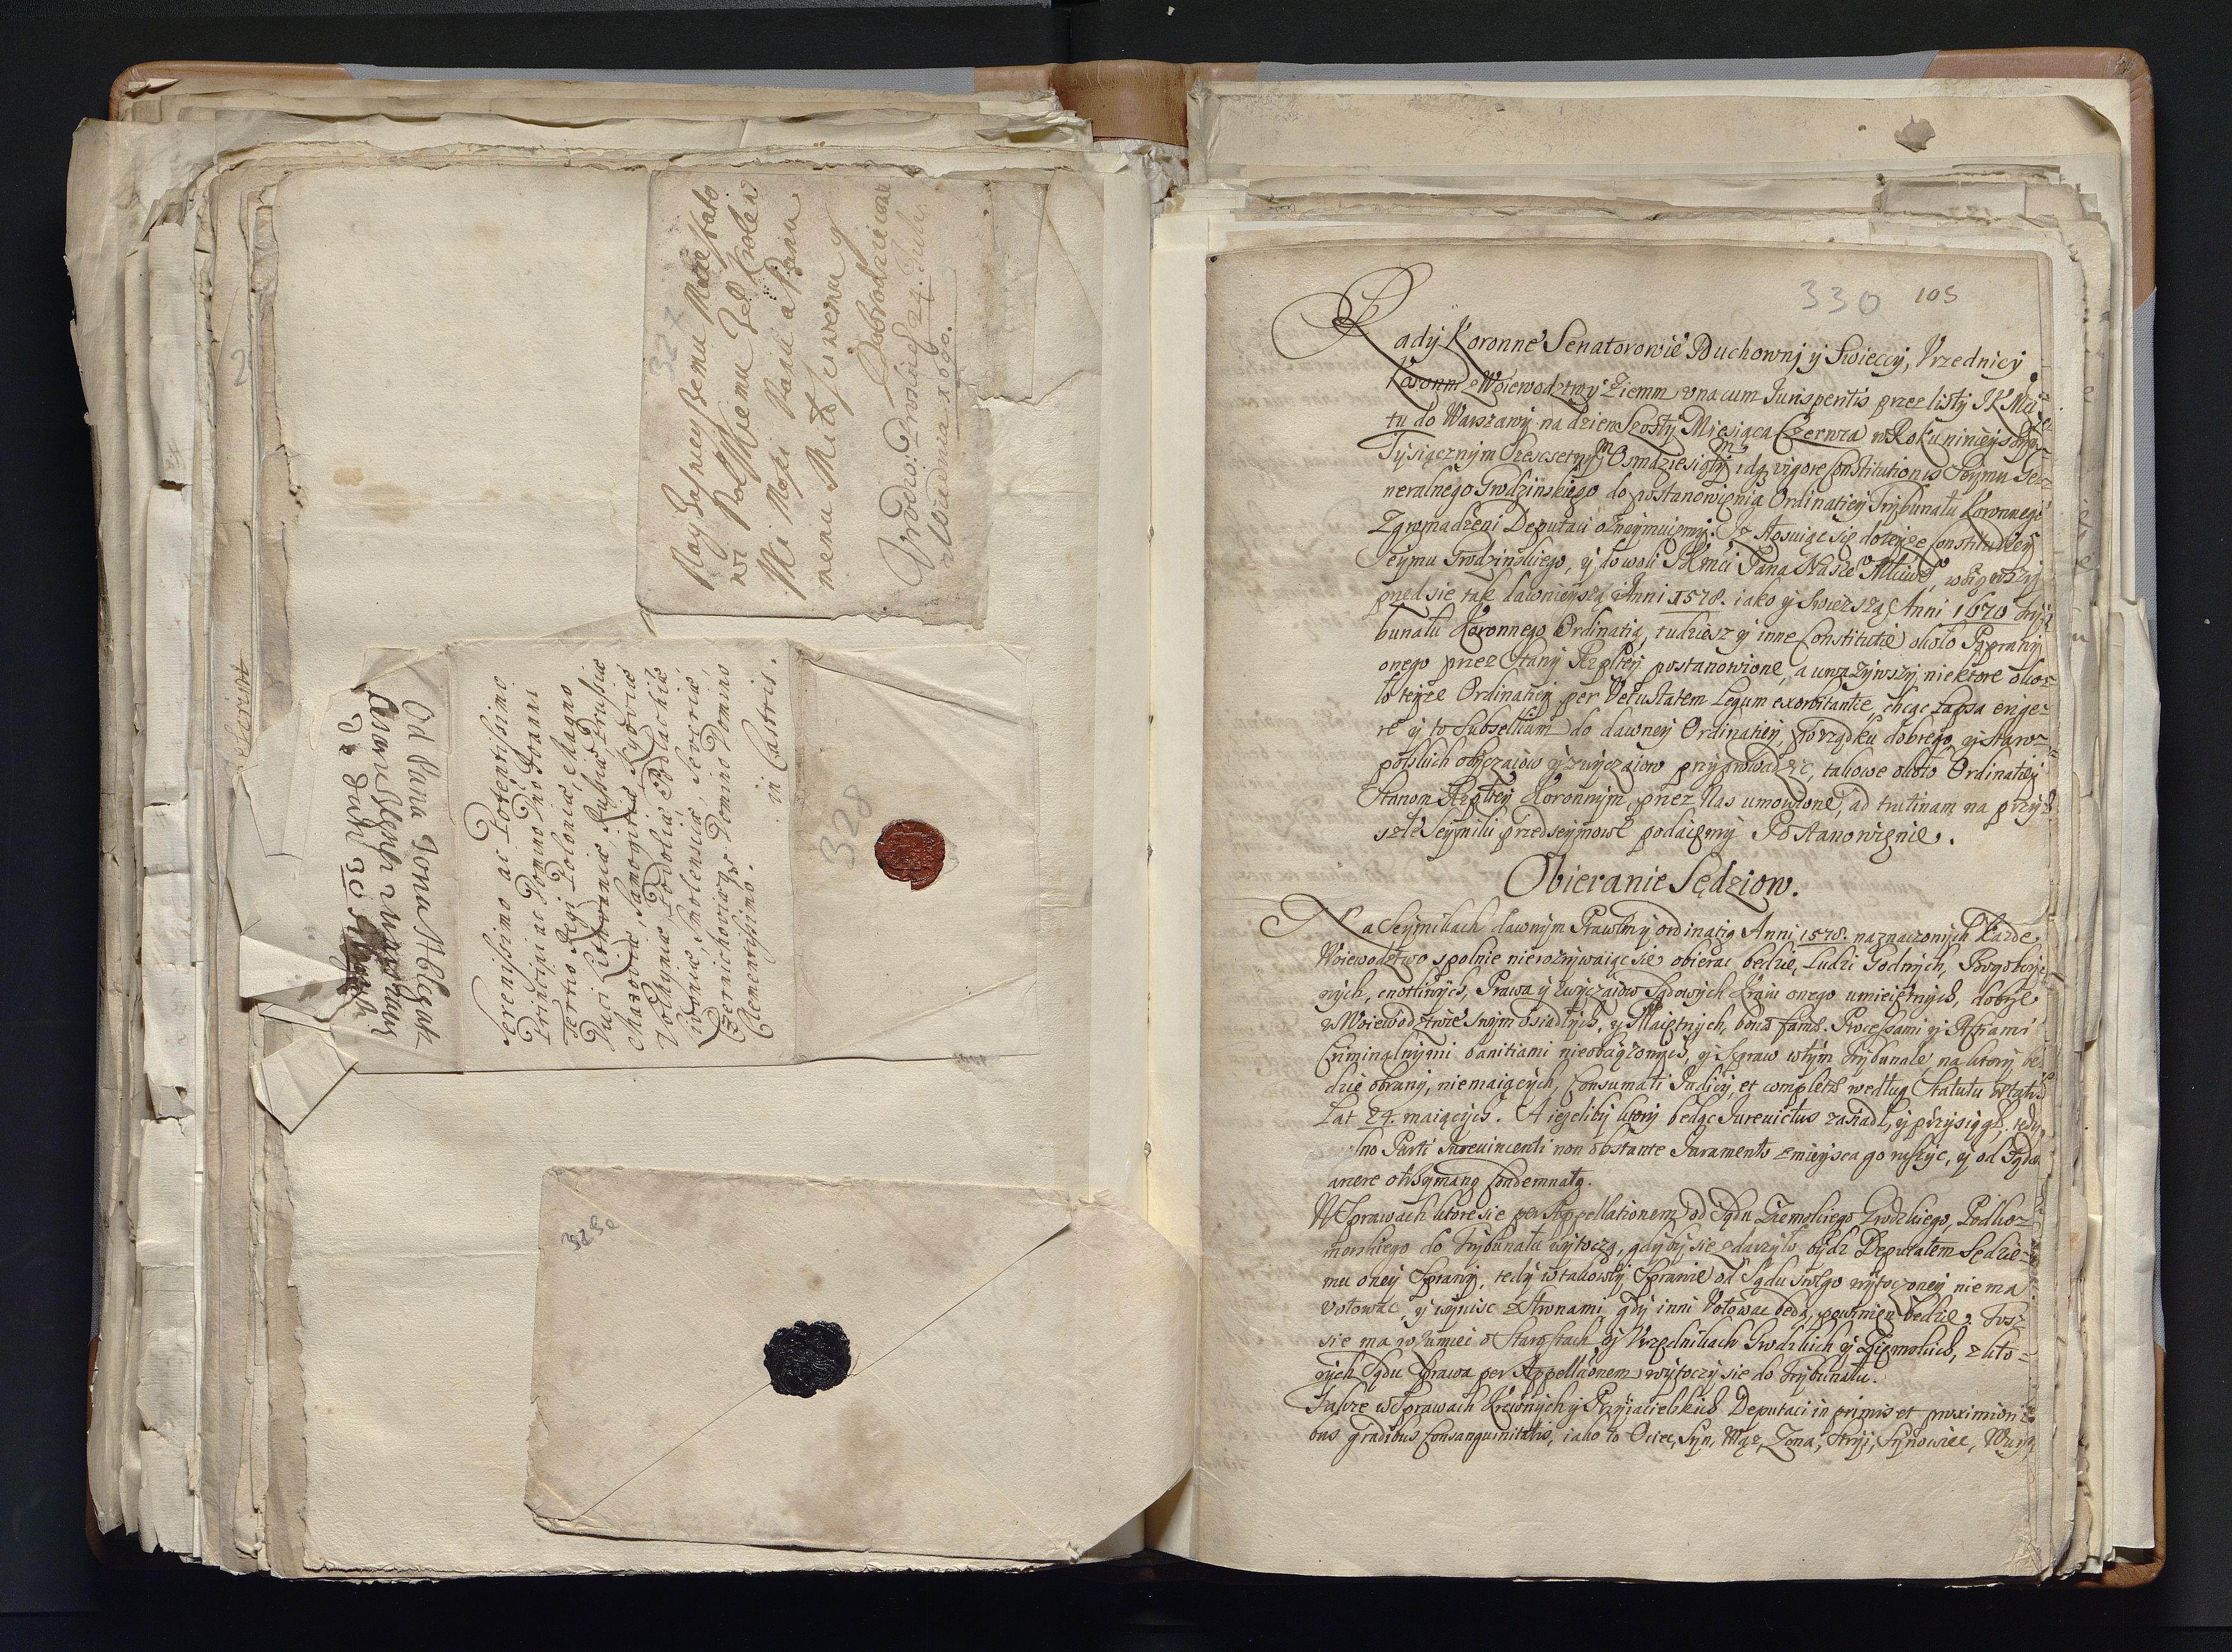 327
Nay Jasnieyszemu Maiestato
wi Polskiemu Jeo Krolew
Mci Mosci Panu a Panu
memu Miłosciwemu y
Dobrodzieiowi
z Wiednia 1690.
24. July
Od Pana Jona Ablegata
Serenissimo ac Potentissimo
Principi ac Domino Dno Joanni
Tertio Regi Poloniæ, Magno
Duci Lithvaniæ, Russiæ, Prussiæ
Mazoviæ, Samogitiæ, Kyoviæ
Volhyniæ, Podoliæ, Podlachiæ
Livoniæ, Smolensciæ, Severiæ,
Czernichoviæq; Domino Domino
Clementissimo.
in Castris.
328
329
330 105
Rady Koronne Senatorowie Duchowni y Swieccy, Vrzednicy
Koronni z Woiewodztwy Ziemm vnacum Jurisperitis przez listy JKMci
tu do Warszawy na dzien Szosty Miesiąca Czerwca w Roku ninieyszym
Tysiącznym Szescsetnym Osmdziesiątym idq vigore Constitutionis Seymu Ge=
neralnego Grodzinskiego do postanowienia Ordinatiey Trybunału Koronnego
Zgromadzeni Deputaci oznaymuiemy. Iz stosuiąc się do teyze Constitutiey
Seymu Grodzinskiego, y do woli JKMci Pana Nasze Młciwe, wziąwszy
przed sie tak dawnieyszą Anni 1578. iako y swiezszą Anni 1670 Try=
bunału Koronnego Ordinatią, tudziesz y inne Constitutie około Poprawy
onego przez Stany Rzpltey postanowione, a uwazywszy niektore oko=
ło teyze Ordinatiey per Vetustatem Legum exorbitantie, chcąc Lapsa erige=
re y to Subsellium do dawney Ordinatiey porządku dobrego y staro=
polskich obyczaiow y zwyczaiow przyprowadzic, takowe około Ordinatiey
Stanom Rzpltey Koronnym przez Nas umowione, ad trutinam na przy=
szłe Seymiki przedseymowe podaiemy Postanowienie.
Obieranie Sędziow.
Na Seymikach dawnym Prawem y ordinatią Anni 1578. naznaczonych Kazde
Woiewodztwo spolnie nierozrywaiąc sie obierac będzie, Ludzi Godnych, Bogoboy=
nych, cnotliwych, Prawa y zwyczaiow Sądowych Kraiu onego umieiętnych, dobrze
w Woiewodztwie swym osiadłych, y Maiętnych, bonæ famæ. Processami y Actiami
Criminalnymi banitiami nieobciązonych, y Spraw w tym Trybunale, na ktory bę
dzie obrany, niemaiących, Consumati Judicij, et completæ według Statutu
Lat 24. maiących. A iezeliby ktory bedąc Jurevictus zasiadł, y przysiągł, tedy
wolno Parti Jurevincenti non obstante Juramento z mieysca go ruszyc, y od Sądze
anere otrzymaną Condemnatą.
W Sprawach ktore sie per Appellationem od Sądu Ziemskiego Grodzkiego, Podko=
morskiego do Trybunału wytoczą, gdyby sie zdarzyło bydz Deputatem Sędzie=
mu oney Sprawy, tedy w takowey Sprawie od Sądu swego wytoczoney nie ma
Votowac y wynisc z Stronami, gdy inni Votowac będą, powinien będzie. Tosz
sie ma rozumiec o Starostach y Vrzędnikach Grodzkich y Ziemskich, z kto=
rych Sądu Sprawa per Appellaonem wytoczy sie do Trybunału.
Takze w Sprawach Krewnych y Przyiacielskich Deputaci in primis et proximiori
bus gradibus Consanguinitatis, iako to Ociec, Syn, Mąz, Zona, Stryi, Synowiec, Wuy,